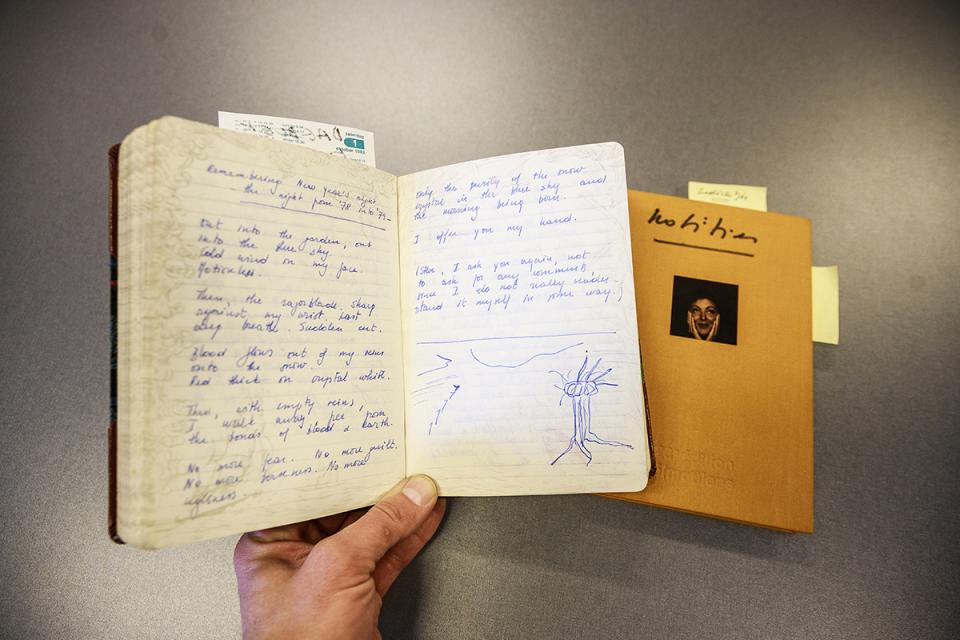 zaterdag
1
oktober 1983
Remembering New year's night
the night from '78 into '79 -
Out into the garden, out
into the blue sky.
Cold wind on my face.
Motionless.
Then, the razorblade sharp
against my wrist. Last
deep breath. Sudden cut.
Blood flows out of my veins
onto the snow.
Red thick on crystal white.
Then, with empty veins,
I walk away free from
the bonds of blood & earth.
No more fear. No more guilt.
No more No more
ugliness.
Only the purity of the snow
crystal in the blue sky and
the morning being born.
I offer you my hand.
(Stan, I ask you again, not
to ask for any comment,
since I do not really under-
stand it myself in some way.)
notities